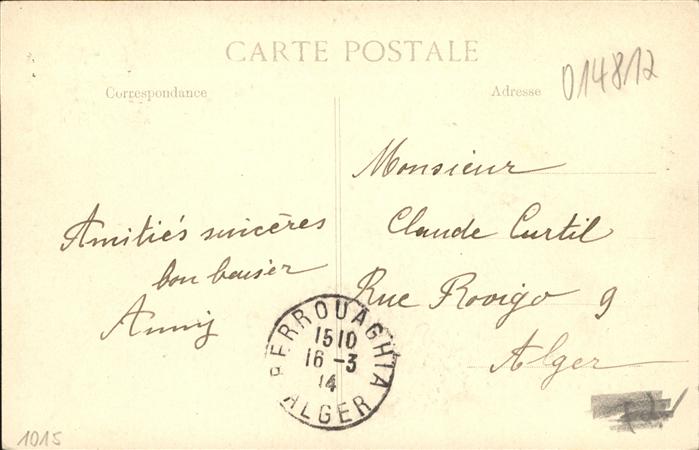 CARTE POSTALE
Correspondance
Adresse
014812
Monsieur
Claude Curtil
Rue Rovigo 9
Alger
Amitiés sincères
bon baiser
Anny
BERROUAGHIA
1510
16 -3
14
ALGER
1015